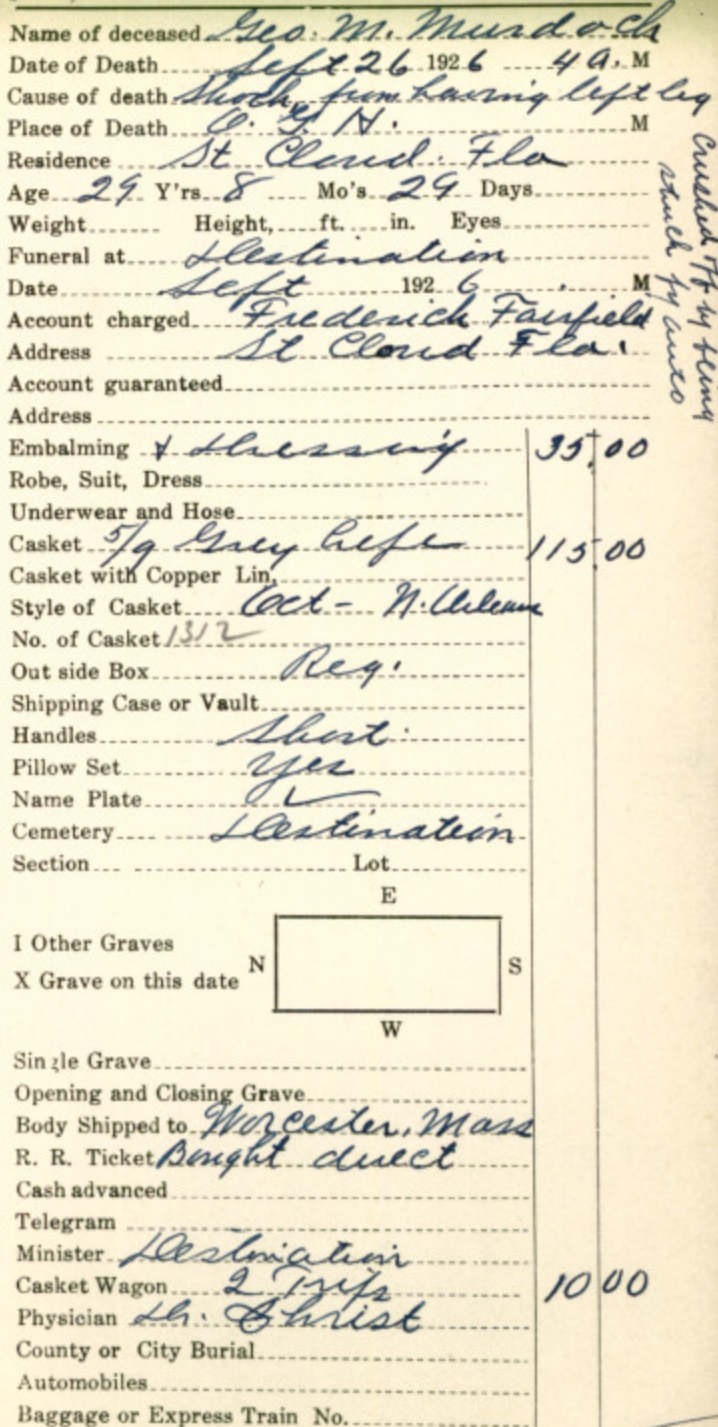 Name of deceased Geo. M. Murdoch
Date of Death Sept 26 1926 4 a. M
Cause of death Shock, from having left leg
crushed off by being
struck by auto
Place of Death O. G. H. M
Residence St Cloud. Fla
Age 29 Y'rs 8 Mo's 29 Days
Weight Height, ft. in. Eyes
Funeral at Destination
Date Sept 1926 M
Account charged Frederick Fairfield
Address St Cloud Fla.
Account guaranteed
Address
Embalming & Dressing 35.00
Robe, Suit, Dress
Underwear and Hose
Casket 5/9 Grey 115 00
Casket with Copper Lin.
Style of Casket Oct - N. Orleans
No. of Casket 1312
Out side Box Reg.
Shipping Case or Vault
Handles Short
Pillow Set Yes
Name Plate ✓
Cemetery Destination
Section Lot
E
I Other Graves
N S
X Grave on this date
W
Single Grave
Opening and Closing Grave
Body Shipped to Worcester, Mass
R. R. Ticket Bought direct
Cash advanced
Telegram
Minister Destination
Casket Wagon 2 Trips 10 00
Physician Dr. Christ
County or City Burial
Automobiles
Baggage or Express Train No.